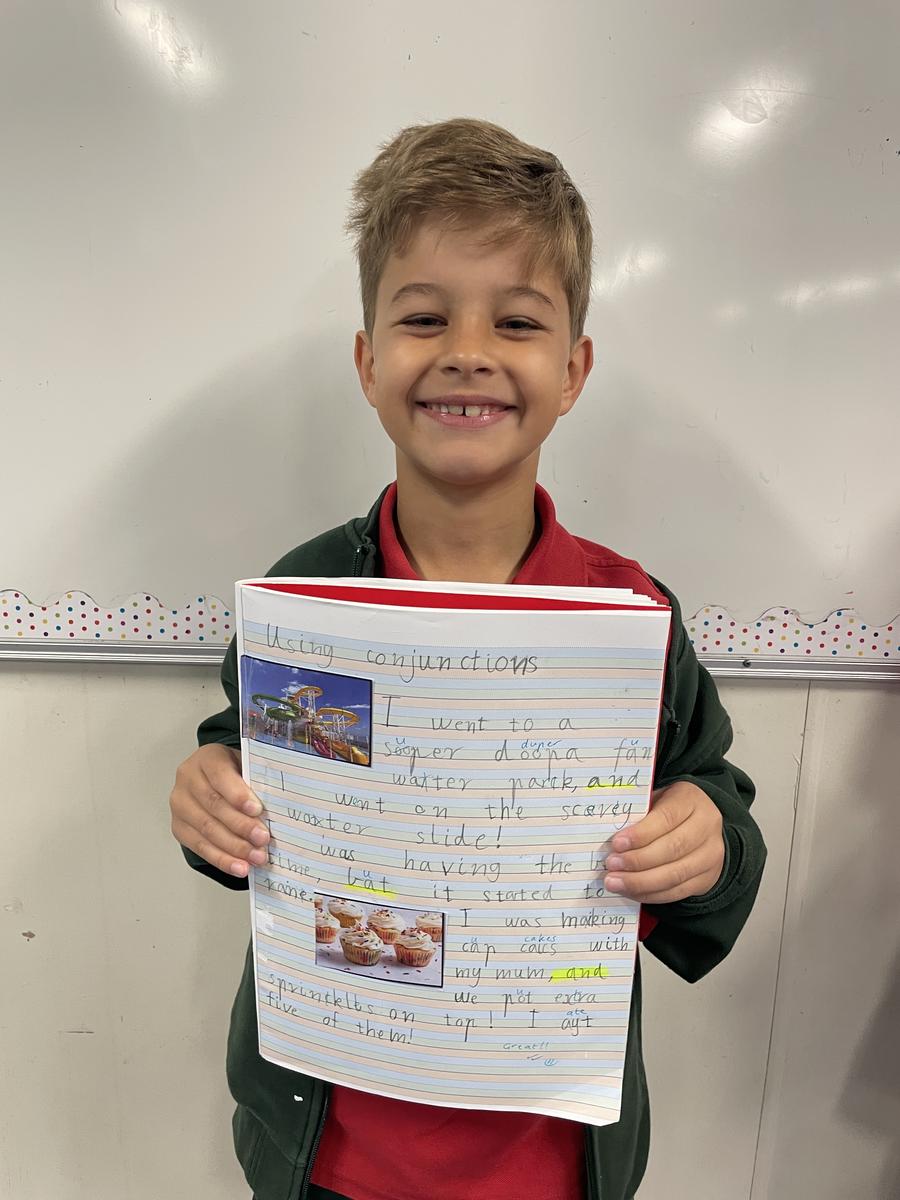 Using conjunctions
I went to a
u duper u
sooper doopa fan
watter parck, and
I went on the scarey
waxter slide!
I was having the
u
time, bat it started to
raine.
I was making
u cakes
cap cacs with
my mum, and
u
we pot extra
sprinkelts on top! I ayt
ate
five of them!
Great!!